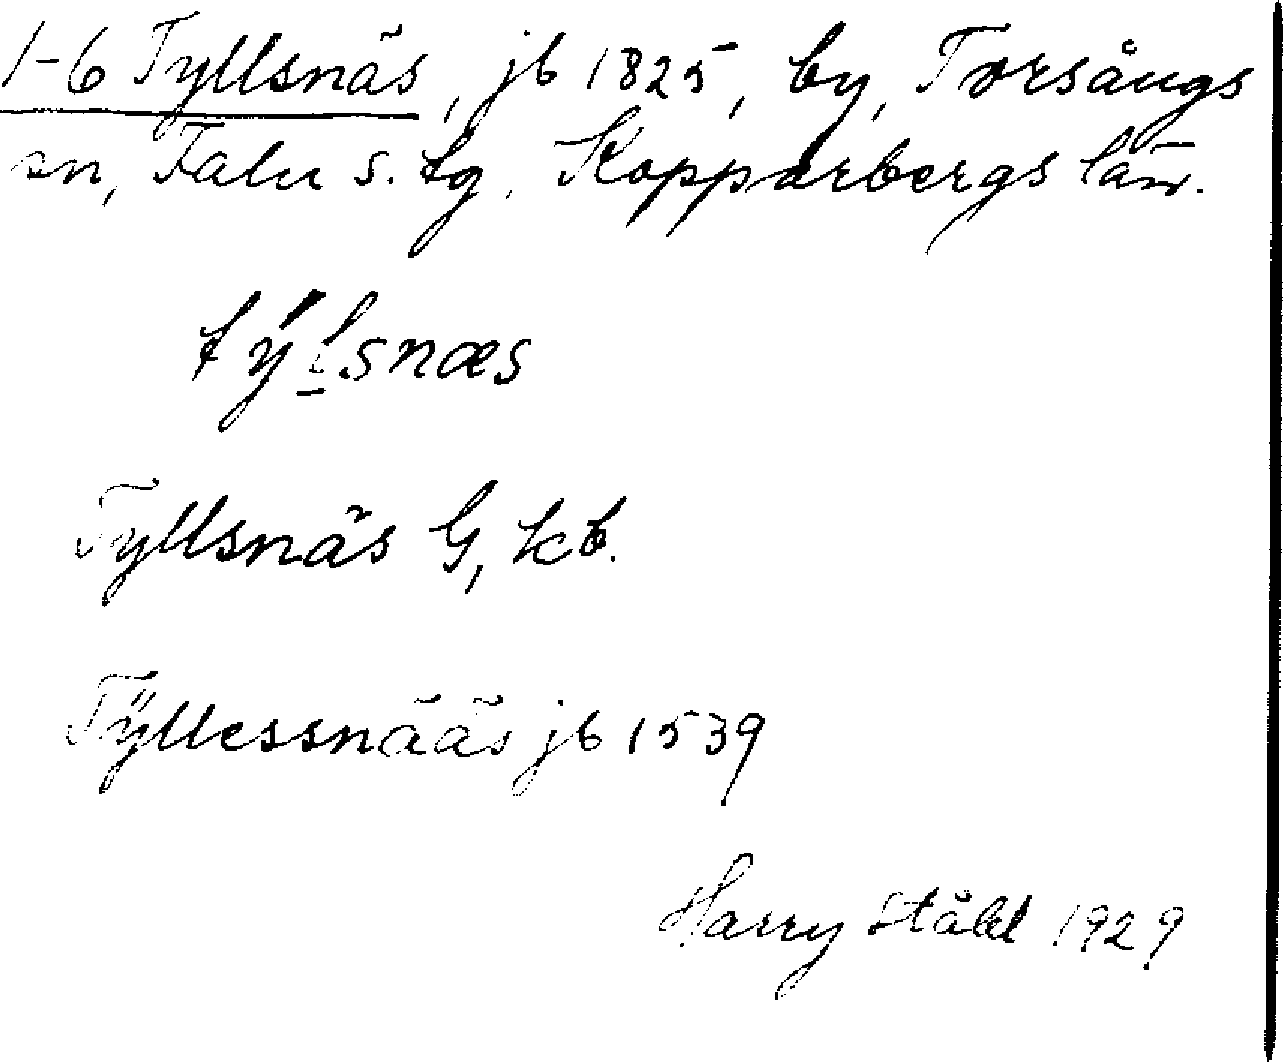 1-6 Tyllsnäs, jb 1825, by, Torsångs
sn, Falu s. tg. Kopparbergs län.
tý̱lsnæs
Tyllsnäs G, kb.
Tÿllessnääs jb 1539
Harry Ståhl 1929